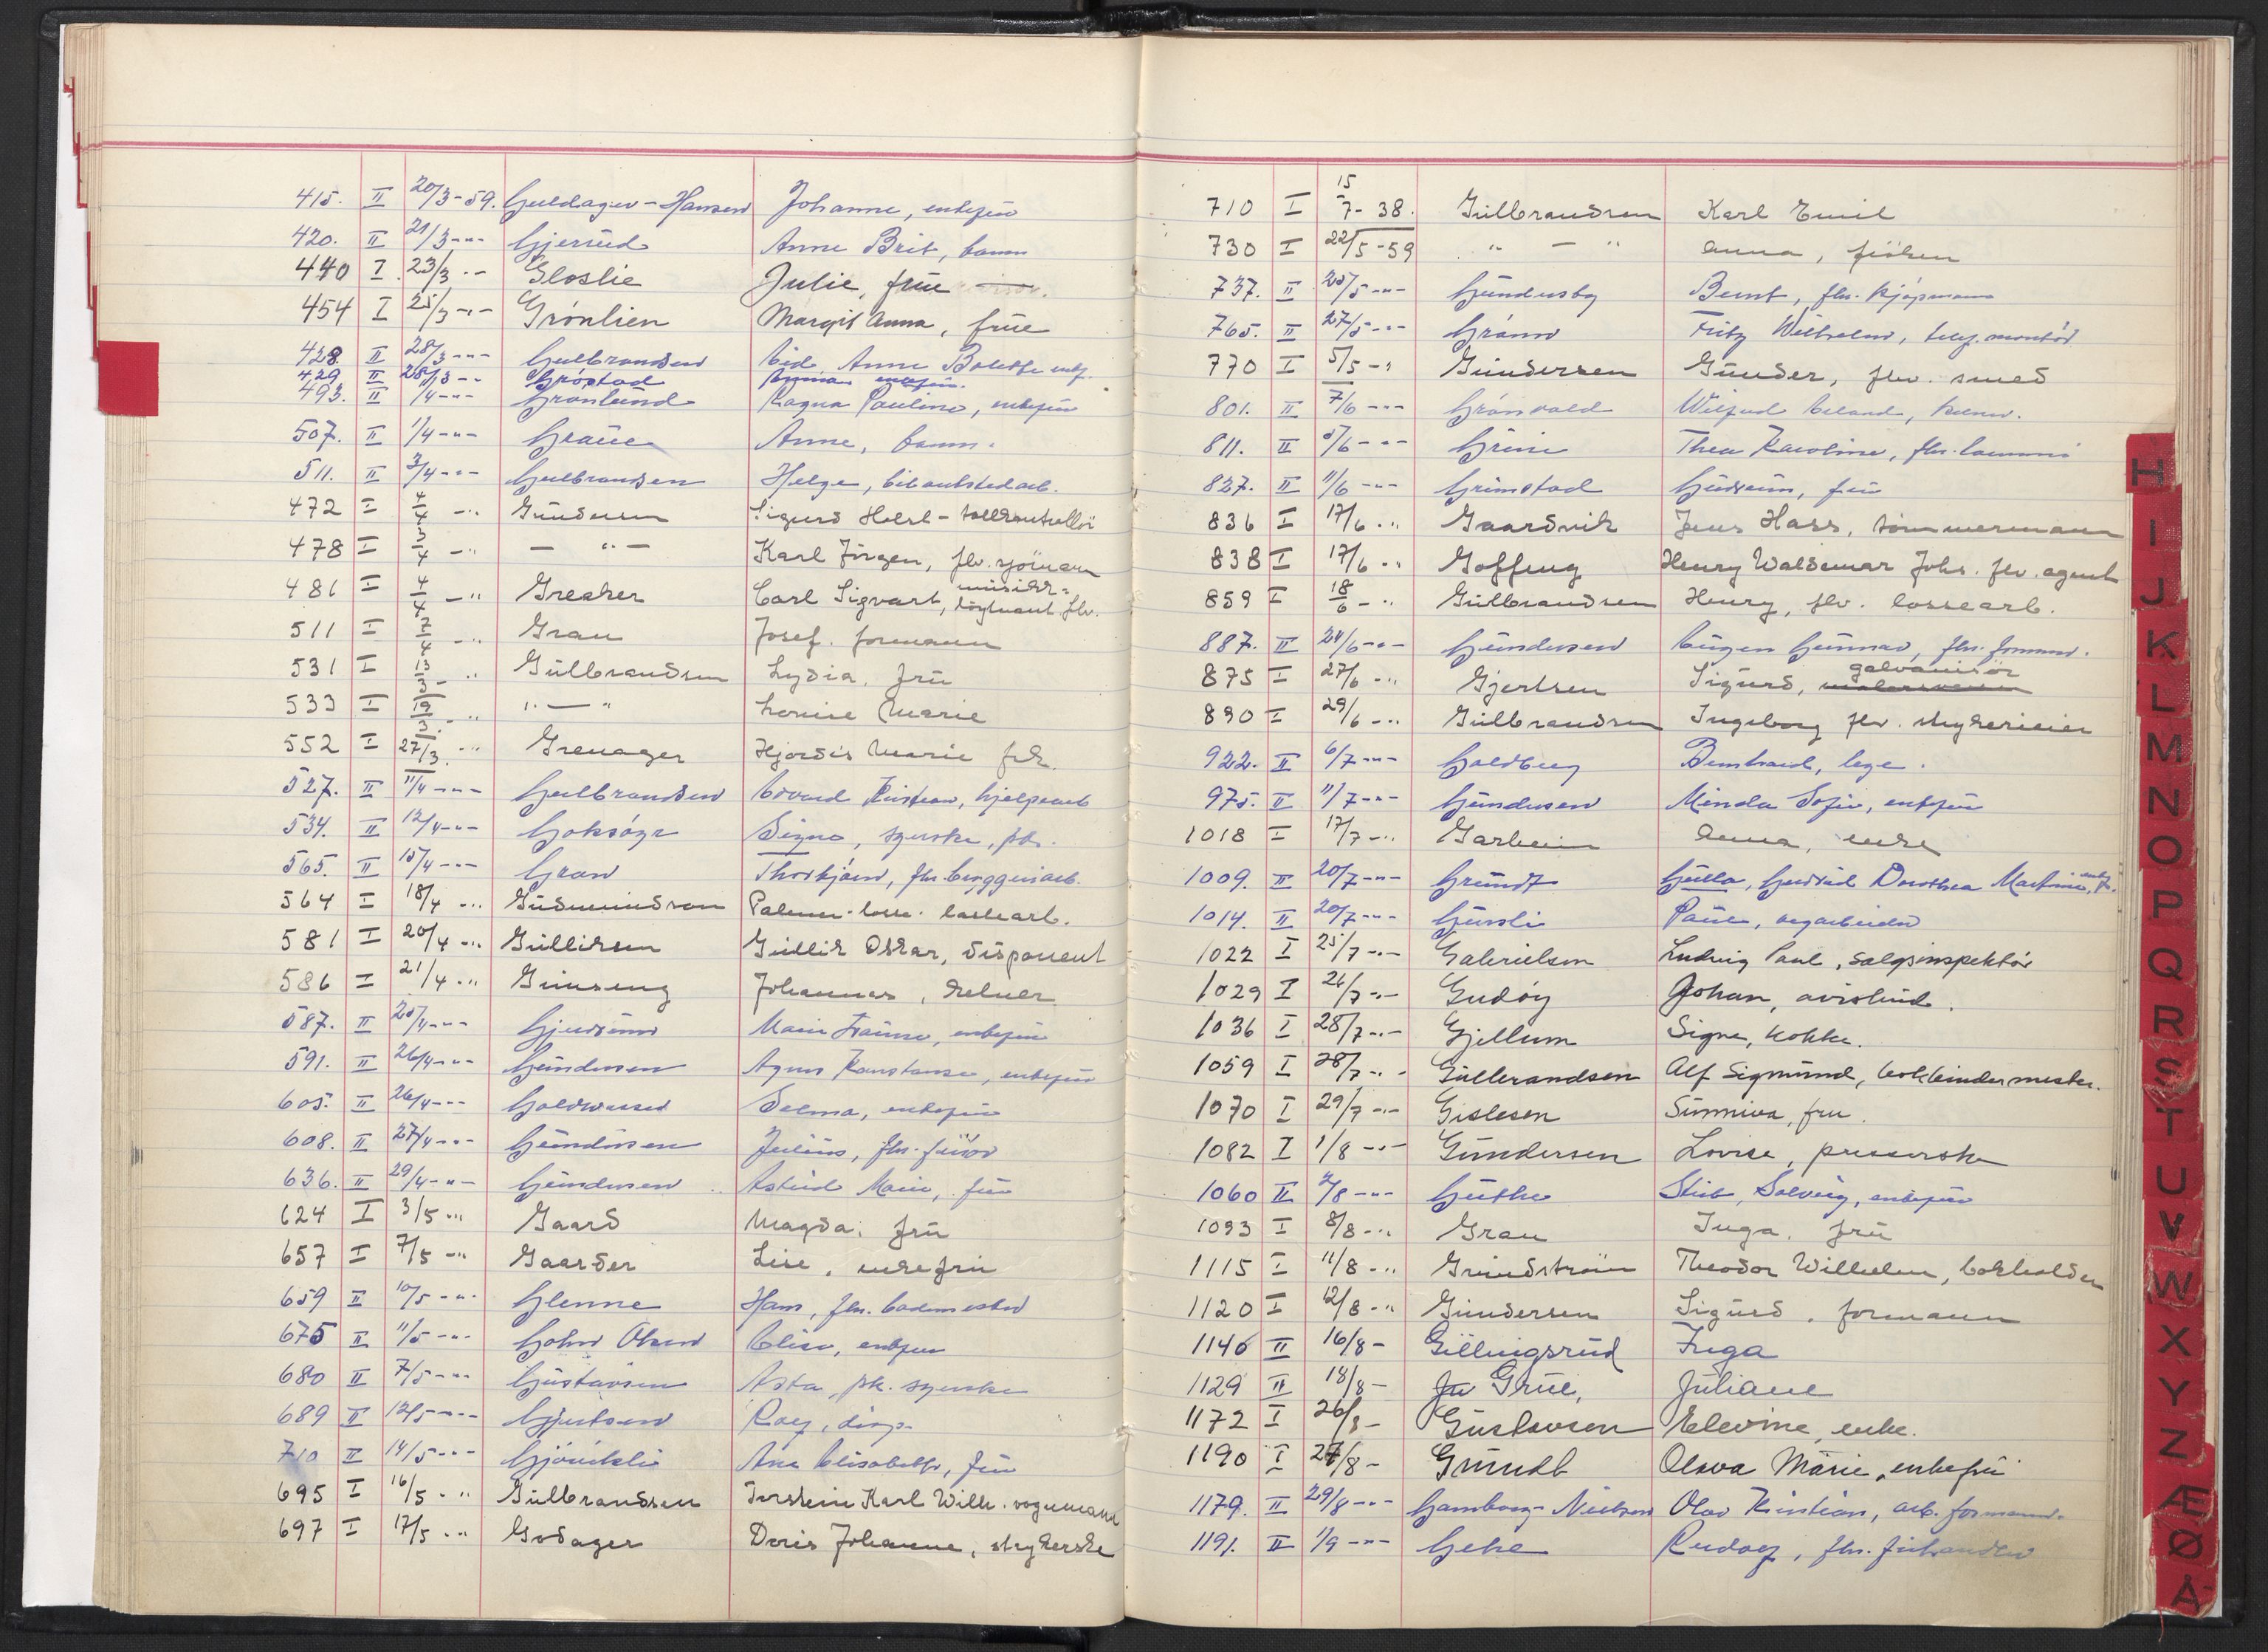 415. II 20/3-59. Guldager-Hansen Johanne, enkefrue
420. II 21/3-"- Gjerrud Anne Brit, barn
440 I 23/3 -"- Gloslie Julie, frue
454 I 25/3 -"- Grönlien Margit Anna, frue
428. II 28/3-"- Gulbrandsen Eid, Anne Bolette enkf.
429 II 28/3-"- Gröstad Anna enkefru.
493. II 1/4-"- Grønlund Ragna Pauline, enkefru
507. II 1/4-"- Graue Anne, barn.
511. II 3/4-"- Gulbrandsen Helge,
472 I 4/4 -" Gundersen Sigurd Holst - tollkontrollör
478 I 3/4 -" — " — Karl Jörgen, fhv. sjömann
481 I 4/4 -" Greaker Carl Sigvart, musikk= löytnant fhv.
511 I 7/4 -" Gran Josef. formann
531 I 13/3 -" Gulbrandsen Lydia. frü
533 I 19/3 -" " — " Lovise Marie
552 I 27/3. -" Grenager Hjördis Marie frk.
527. II 11/4-"- Gulbrandsen Edvard Kristian, hjelpearb
534. II 12/4-"- Goksøyr Signe, syerske, frk.
565. II 15/4-"- Gran Thorbjørn, fhv. bryggeriarb.
564 I 18/4 -" Gudmundson Palmer- lossearb.
581 I 20/4 -" Gulliksen Gullik Oskar, disponent
586 I 21/4 -" Grinseng Johannes, kelner
587. II 25/4-"- Gjerdrum Marie Fanny, enkefru
591. II 26/4-"- Gundersen Agnes Konstanse, enkefru
605. II 26/4-"- Goldwasser Selma, enkefru
608. II 27/4-"- Gundersen Julius, fhv. fürer
636. II 29/4-"- Gundersen Astrid Marie, fru
624 I 3/5 -" Gaard Magda. frü
657 I 7/5 -" Gaarder Lise, enkefrü
659 II 10/5 -"- Glenne Hans, fhv. bademester
675 II 11/5 -"- Gohn Olsen Elise, enkefru
680 II 7/5-"- Gustavsen Asta, frk. syerske
689 II 12/5-"- Gjertsen Rolf, disp.
710 II 14/5-"- Gjøvikli Ane Elisabeth, fru
695 I 16/5 -" Gulbrandsen Torstein Karl Wilh. vognmann
697 I 17/5 -" Godager Doris Johanne, strykerske
710 I 15/7-38. Gulbrandsen Karl Emil
730 I 22/5-59 " — " Anna, fröken
737. II 25/5-"- Gundersby Bernt, fhv. kjøpmann
765. II 27/5-"- Grann Fritz Wilhelm, teleg. montør
770 I 5/5 -" Gundersen Gunder, fhv. smed
801. II 7/6 -"- Grønvold Wilfred Erland, kelner.
811. II 8/6 -"- Grini Thea Karoline, fhv.
827. II 11/6 -"- Grimstad Gudrun, fru
836 I 17/6 -" Gaardvik Jens Hass, tömmermann
838 I 17/6 -" Goffeng Henry Waldemar Johs. fhv. agent
859 I 18/6 -" Gulbrandsen Henry, fhv. lossearb.
887. II 24/6-"- Gundersen Eugen Gunnar, fhv. formann.
875 I 27/6 -" Gjertsen Sigurd, galvanisör
890 I 29/6 -" Gulbrandsen Ingeborg fhv. strykerieier
922. II 6/7-"- Goldberg Bernhard, lege.
975. II 11/7-"- Gundersen Minda Sofie, enkefru
1018 I 17/7 -" Garheim Anna, enke
1009. II 20/7-"- Grundt Gulla, Gudrid Dorothea Martine, enkf.
1014. II 20/7-"- Gursli Paul, vegarbeider
1022 I 25/7 -"- Gabrielsen Ludvig Paul, salgsinspektör
1029 I 26/7 -"- Gudöy Johan, avisbud.
1036 I 28/7 -"- Gjellum Signe, kokke.
1059 I 28/7 -"- Gulbrandsen Alf Sigmund, bokbindermester.
1070 I 29/7 -"- Gislesen Sunniva, fru.
1082 I 1/8 -"- Gundersen Lovise, presserske
1060 II 2/8 -"- Guthe Stub, Solveig, enkefru
1093 I 8/8 -" Gran Inga. frü
1115 I 11/8 -" Grundström Theodor Wilhelm, bokholder
1120 I 12/8 -" Gundersen Sigurd, formann
1146 II 16/8 - Gullingsrud Inga
1129 II 18/8 - Grue, Juliane
1172 I 26/8 - Gustavsen Elevine, enke.
1190 I 27/8 - Grundt Olava Marie, enkefru
1179. II 29/8-"- Gamborg-Nielsen Olav Kristian, arb. formann.
1191. II 1/9 -"- Gehe Rudolf, fhv.
H
I
J
K
L
M
N
O
P
Q
R
S
T
U
V
W
X
Y
Z
Æ
Ø
Å